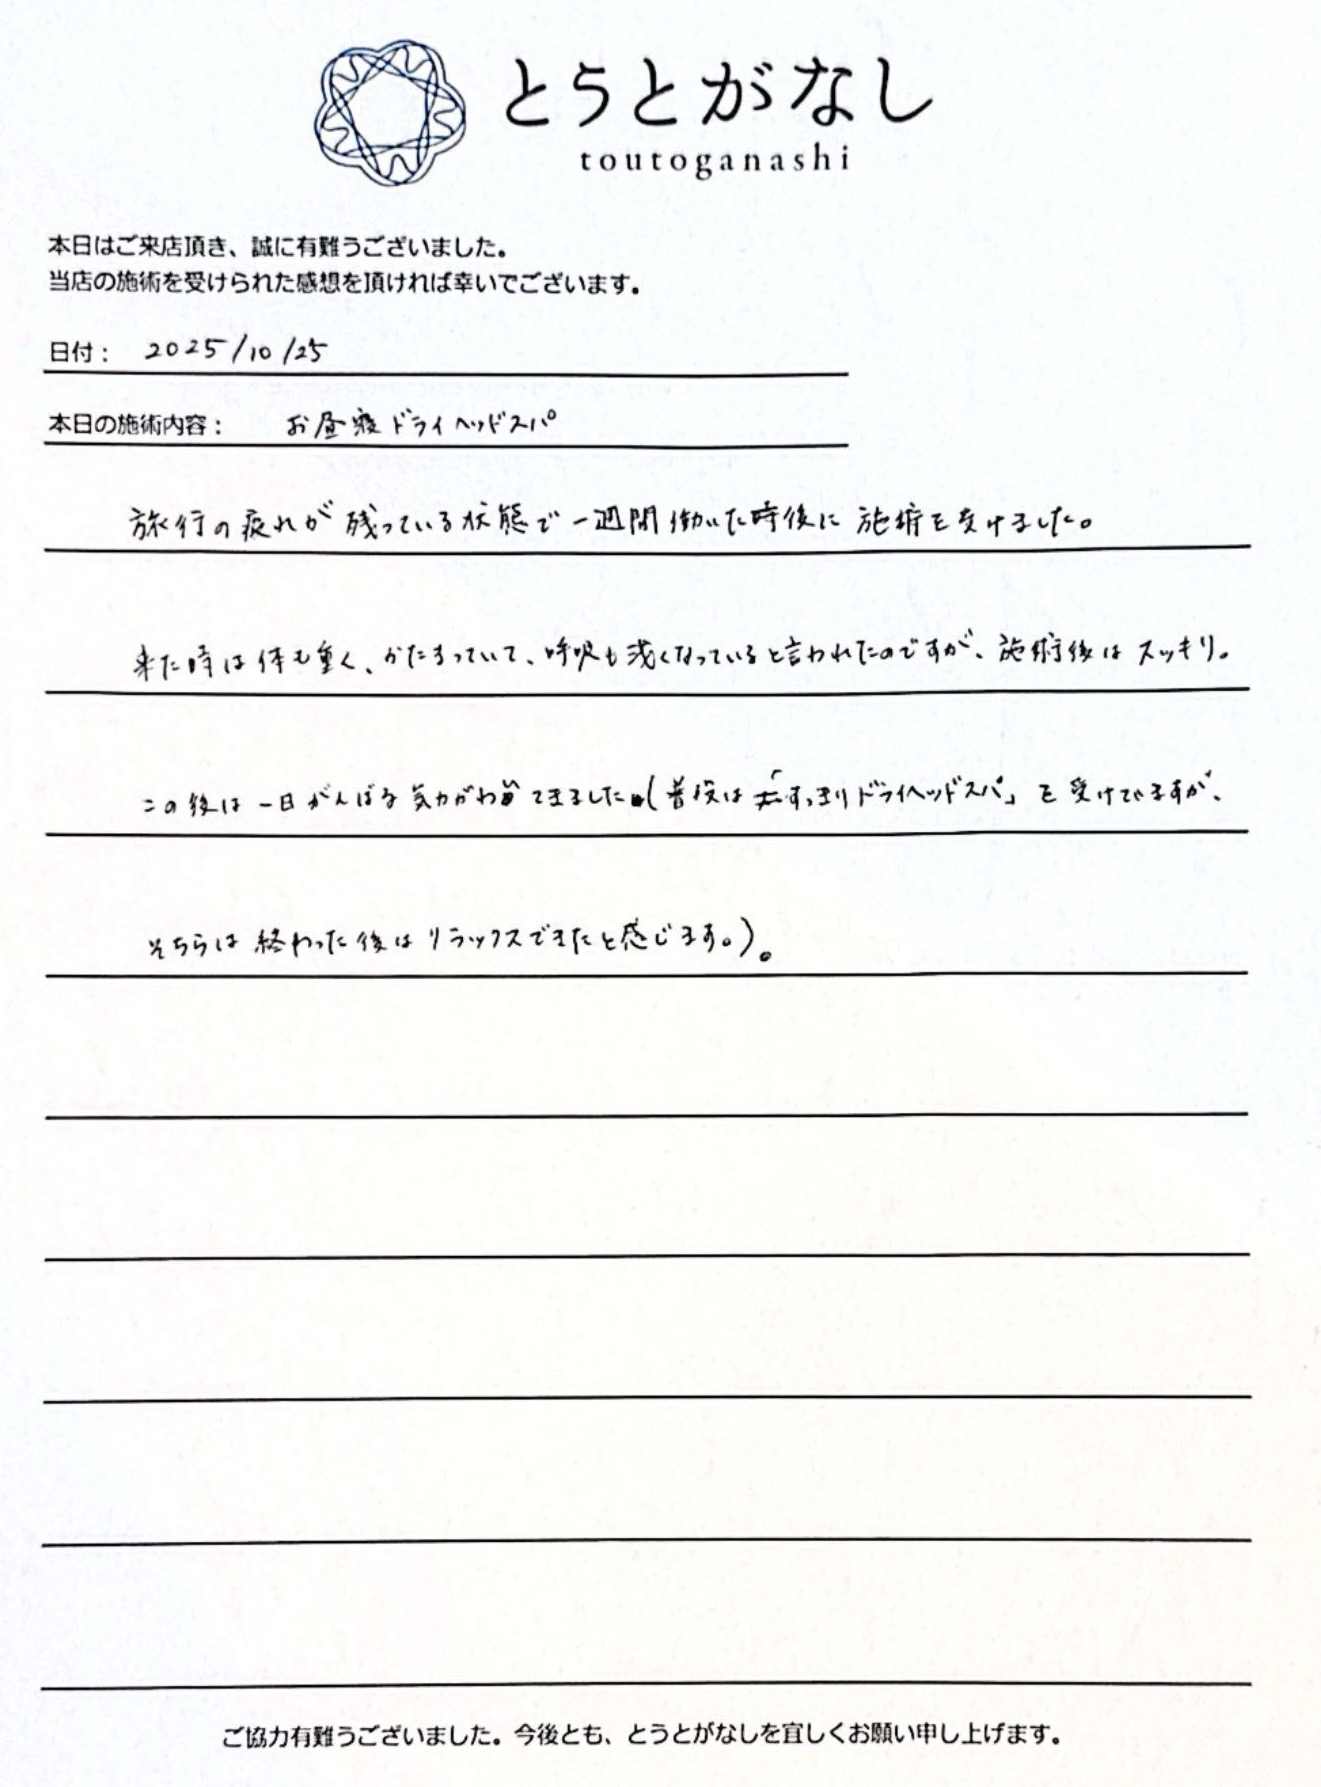 とうとがなし
toutoganashi
本日はご来店頂き、誠に有難うございました。
当店の施術を受けられた感想を頂ければ幸いでございます。
日付： 2025/10/25
本日の施術内容： お昼寝ドライヘッドスパ
旅行の疲れが残っている状態で一週間働いた時後に施術を受けました。
来た時は体も重く、かたまっていて、呼吸も浅くなっていると言われたのですが、施術後はスッキリ。
この後は一日がんばる気力がわいてきました(普段は「すっきりドライヘッドスパ」を受けていますが、
そちらは終わった後はリラックスできたと感じます。)。
ご協力有難うございました。今後とも、とうとがなしを宜しくお願い申し上げます。